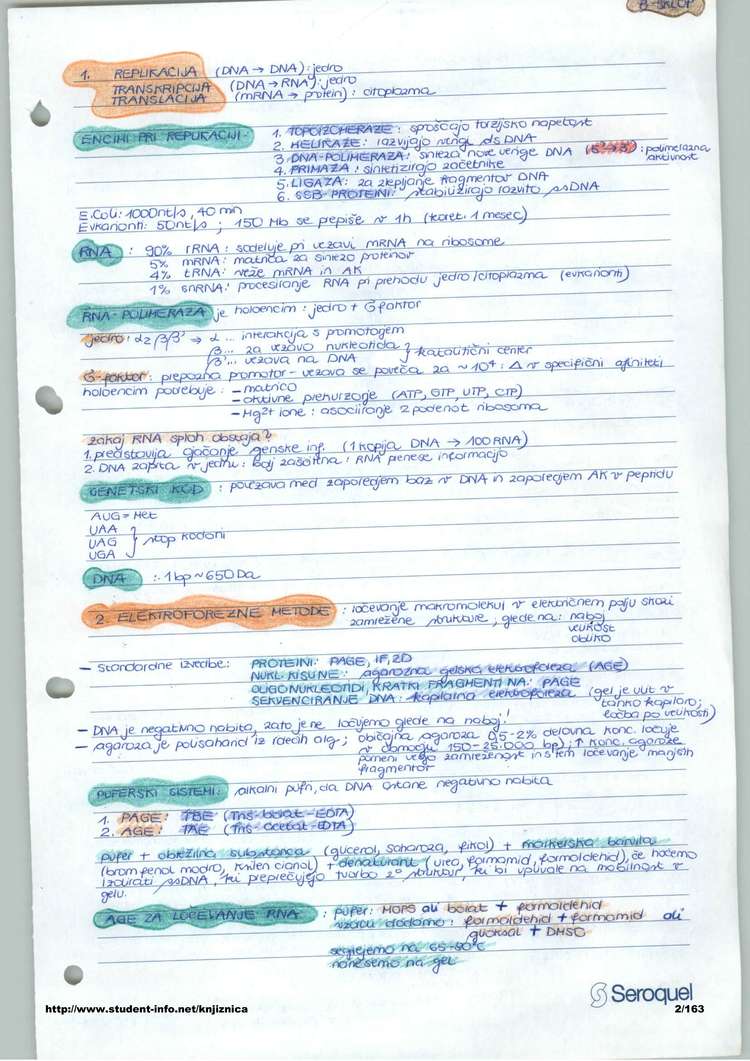 B-SKLOP
1. REPLIKACIJA (DNA → DNA): jedro
TRANSKRIPCIJA (DNA → RNA): jedro
TRANSLACIJA (mRNA → protein): citoplazma
ENCIMI PRI REPLIKACIJI: 1. TOPOIZOMERAZE: sproščajo torzijsko napetost
2. HELIKAZE: razvijajo verigi dsDNA
3. DNA-POLIMERAZA: sinteza nove verige DNA (5'→3') : polimerazna aktivnost
4. PRIMAZA: sintetizirajo začetnike
5. LIGAZA: za zlepljanje fragmentov DNA
6. SSB-PROTEINI: stabilizirajo razvito ssDNA
E. Coli: 1000nt/s, 40 min
Evkarionti: 50nt/s ; 150 Mb se prepiše v 1h (koreni: 1 mesec)
RNA : 90% rRNA: sodeluje pri vezavi mRNA na ribosome
5% mRNA: matrica za sintezo proteinov
4% tRNA: veže mRNA in AK
1% snRNA: procesiranje RNA pri prehodu jedro/citoplazma (evkarionti)
RNA-POLIMERAZA je holoencim: jedro + σ faktor
jedro: α2ββ' → α ... interakcija s promotorjem
β ... za vezavo nukleotida } katalitični center
β' ... vezava na DNA
σ-faktor: prepozna promotor - vezava se poveča za ~ 10⁴ : Δ v specifični afiniteti
holoencim potrebuje: - matrico
- aktivne prekurzorje (ATP, GTP, UTP, CTP)
- Mg2+ ione: asociiranje 2 podenot ribosoma
zakaj RNA sploh obstaja?
1. predstavlja ojačanje genske inf. (1 kopija DNA → 100 RNA)
2. DNA zaprta v jedru: bolj zaščitena: RNA prenese informacijo
GENETSKI KOD : povezava med zaporedjem baz v DNA in zaporedjem AK v peptidu
AUG = Met
UAA
UAG } stop kodoni
UGA
DNA : 1bp ~ 650 Da
2. ELEKTROFOREZNE METODE : ločevanje makromolekul v električnem polju skozi
zamrežene strukture, glede na: naboj
velikost
obliko
- standardne izvedbe: PROTEINI: PAGE, IF, 2D
NUKL. KISLINE: agarozna gelska elektroforeza (AGE)
OLIGONUKLEOTIDI, KRATKI FRAGMENTI NA: PAGE
SEKVENCIRANJE DNA: kapilarna elektroforeza (gel je ulit v
tanko kapilaro;
ločba po velikosti)
- DNA je negativno nabita, zato je ne ločujemo glede na naboj!
- agaroza je polisaharid iz rdečih alg; običajna agaroza 0,5-2% delovna konc. ločuje
v območju 150-25.000 bp); ↑ konc. agaroze
pomeni večjo zamreženost in s tem ločevanje manjših
fragmentov
PUFERSKI SISTEMI: alkalni pufri, da DNA ostane negativno nabita
1. PAGE: TBE (Tris-borat-EDTA)
2. AGE: TAE (Tris-acetat-EDTA)
pufer + obtežilna substanca (glicerol, saharoza, fikol) + markerska barvila
(bromfenol modro, ksilen cianol) + denaturant (urea, formamid, formaldehid), če hočemo
izolirati ssDNA, ki preprečujejo tvorbo 2° struktur, ki bi vplivale na mobilnost v
gelu.
AGE ZA LOČEVANJE RNA : pufer: MOPS ali borat + formaldehid
vzorcu dodamo: formaldehid + formamid ali
glioksal + DMSO
segrejemo na 65-80°C
nanesemo na gel
Seroquel
http://www.student-info.net/knjiznica 2/163